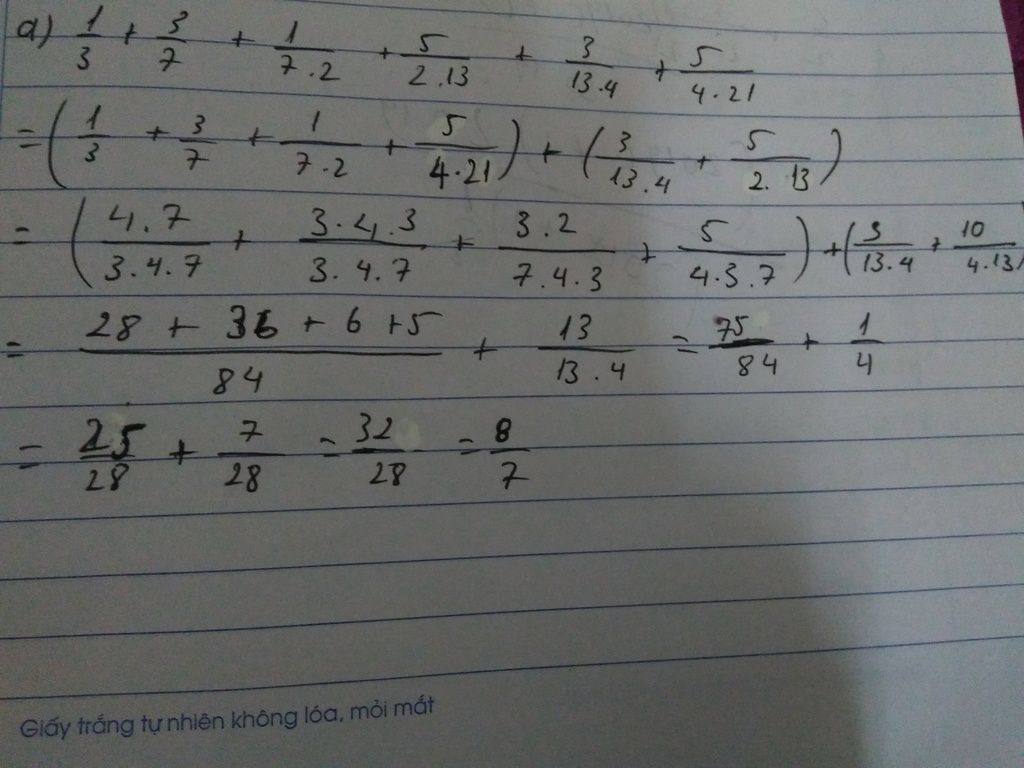 a) 1/3 + 3/7 + 1/(7.2) + 5/(2.13) + 3/(13.4) + 5/(4.21)
= (1/3 + 3/7 + 1/(7.2) + 5/(4.21)) + (3/(13.4) + 5/(2.13))
= ((4.7)/(3.4.7) + (3.4.3)/(3.4.7) + (3.2)/(7.4.3) + 5/(4.3.7)) + (3/(13.4) + 10/(4.13))
= (28 + 36 + 6 + 5)/84 + 13/(13.4) = 75/84 + 1/4
= 25/28 + 7/28 = 32/28 = 8/7
Giấy trắng tự nhiên không lóa, mỏi mắt